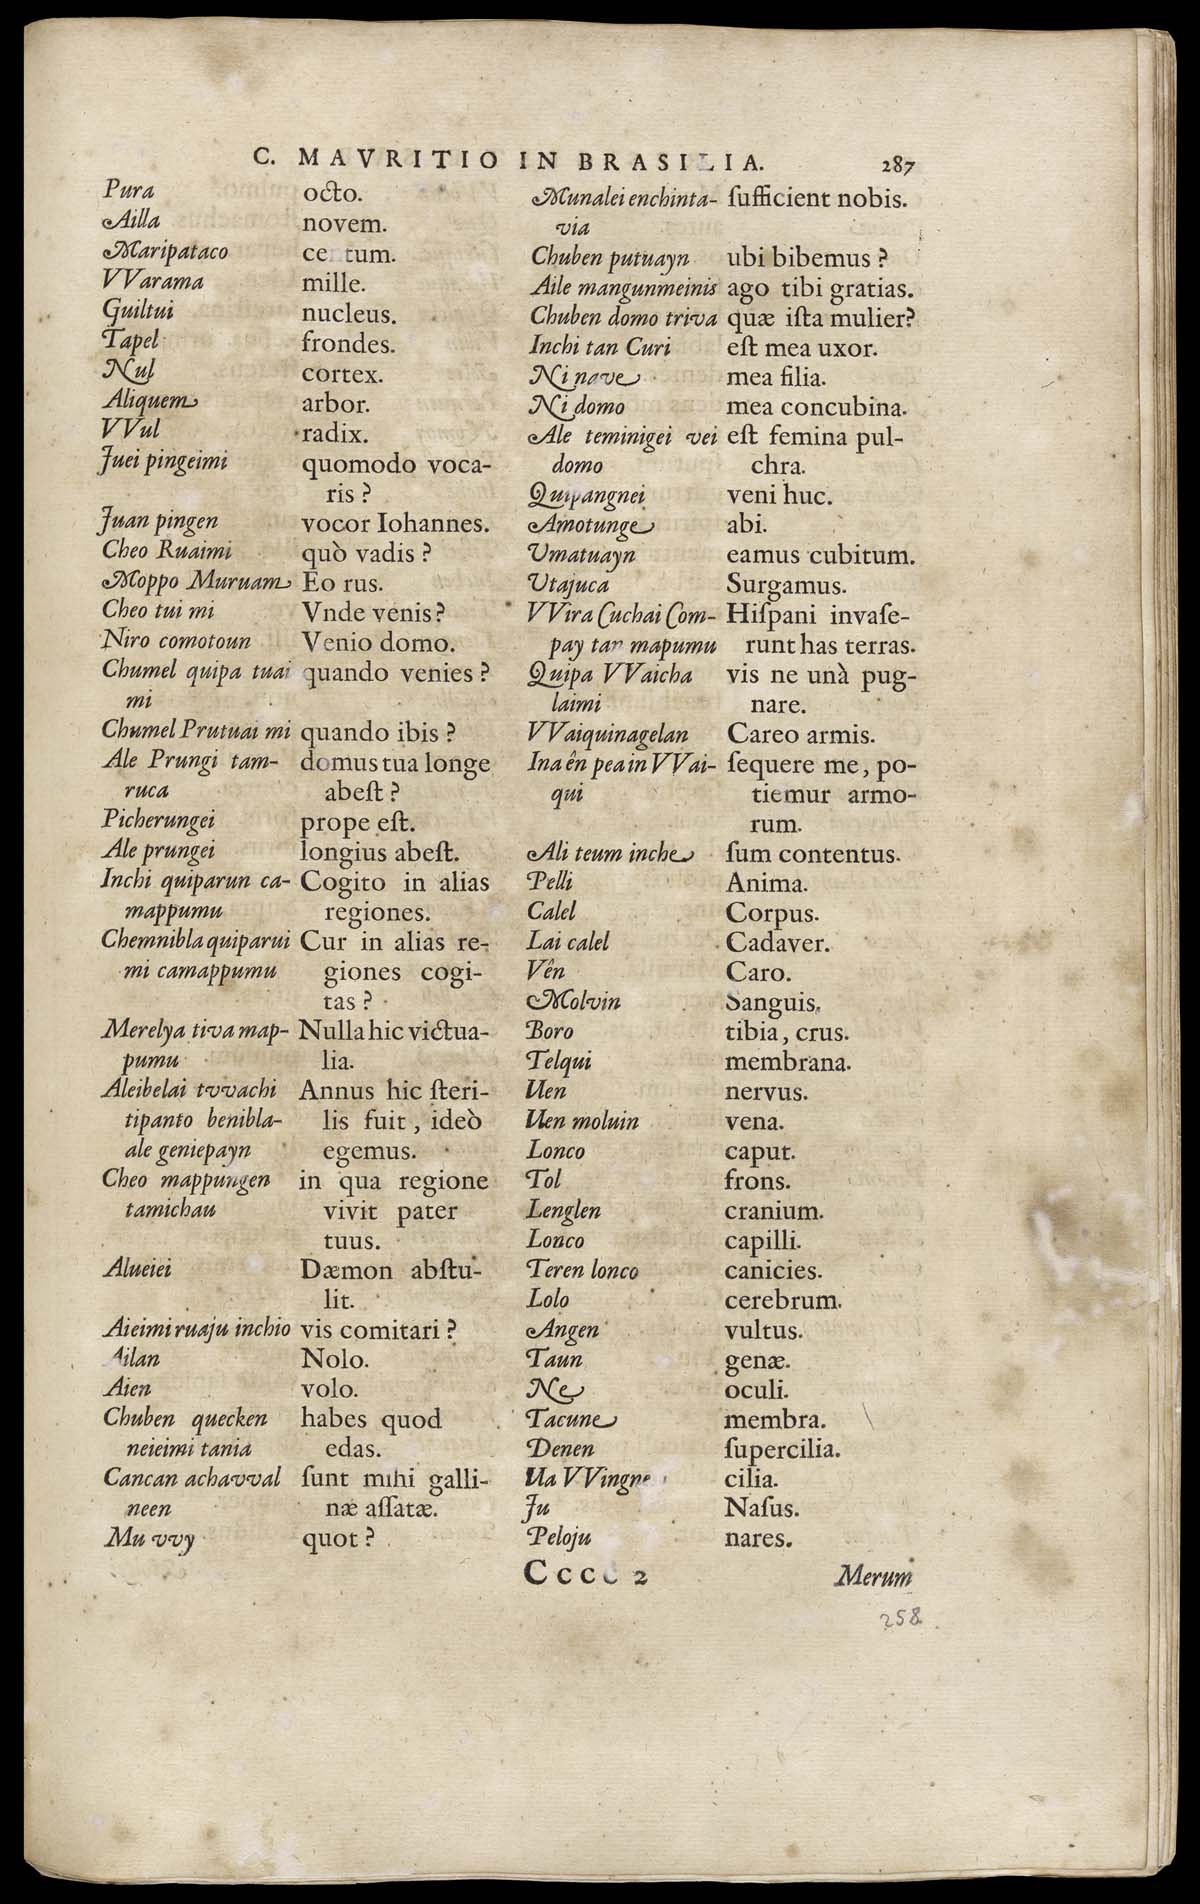 C. MAVRITIO IN BRASILIA. 287
Pura octo.
Ailla novem.
Maripataco centum.
VVarama mille.
Guiltui nucleus.
Tapel frondes.
Nul cortex.
Aliquem arbor.
VVul radix.
Juei pingeimi quomodo voca-
ris ?
Juan pingen vocor Iohannes.
Cheo Ruaimi quò vadis ?
Moppo Muruam Eo rus.
Cheo tui mi Vnde venis ?
Niro comotoun Venio domo.
Chumel quipa tuai quando venies ?
mi
Chumel Prutuai mi quando ibis ?
Ale Prungi tam- domus tua longe
ruca abeſt ?
Picherungei prope eſt.
Ale prungei longius abeſt.
Inchi quiparun ca- Cogito in alias
mappumu regiones.
Chemnibla quiparui Cur in alias re-
mi camappumu giones cogi-
tas ?
Merelya tiva map- Nulla hic victua-
pumu lia.
Aleibelai tvvachi Annus hic ſteri-
tipanto benibla- lis fuit, ideò
ale geniepayn egemus.
Cheo mappungen in qua regione
tamichau vivit pater
tuus.
Alueiei Dæmon abſtu-
lit.
Aieimi ruaju inchio vis comitari ?
Ailan Nolo.
Aien volo.
Chuben quecken habes quod
neieimi tania edas.
Cancan achavval ſunt mihi galli-
neen næ aſſatæ.
Mu vvy quot ?
Munalei enchinta- ſufficient nobis.
via
Chuben putuayn ubi bibemus ?
Aile mangunmeinis ago tibi gratias.
Chuben domo triva quæ iſta mulier?
Inchi tan Curi eſt mea uxor.
Ni nave mea filia.
Ni domo mea concubina.
Ale teminigei vei eſt femina pul-
domo chra.
Quipangnei veni huc.
Amotunge abi.
Umatuayn eamus cubitum.
Utajuca Surgamus.
VVira Cuchai Com- Hiſpani invaſe-
pay tan mapumu runt has terras.
Quipa VVaicha vis ne unà pug-
laimi nare.
VVaiquinagelan Careo armis.
Ina ên pea in VVai- ſequere me, po-
qui tiemur armo-
rum.
Ali teum inche ſum contentus.
Pelli Anima.
Calel Corpus.
Lai calel Cadaver.
Vên Caro.
Molvin Sanguis.
Boro tibia, crus.
Telqui membrana.
Uen nervus.
Uen moluin vena.
Lonco caput.
Tol frons.
Lenglen cranium.
Lonco capilli.
Teren lonco canicies.
Lolo cerebrum.
Angen vultus.
Taun genæ.
Ne oculi.
Tacune membra.
Denen ſupercilia.
Ua VVingne cilia.
Ju Naſus.
Peloju nares.
Cccc 2 Merum
258